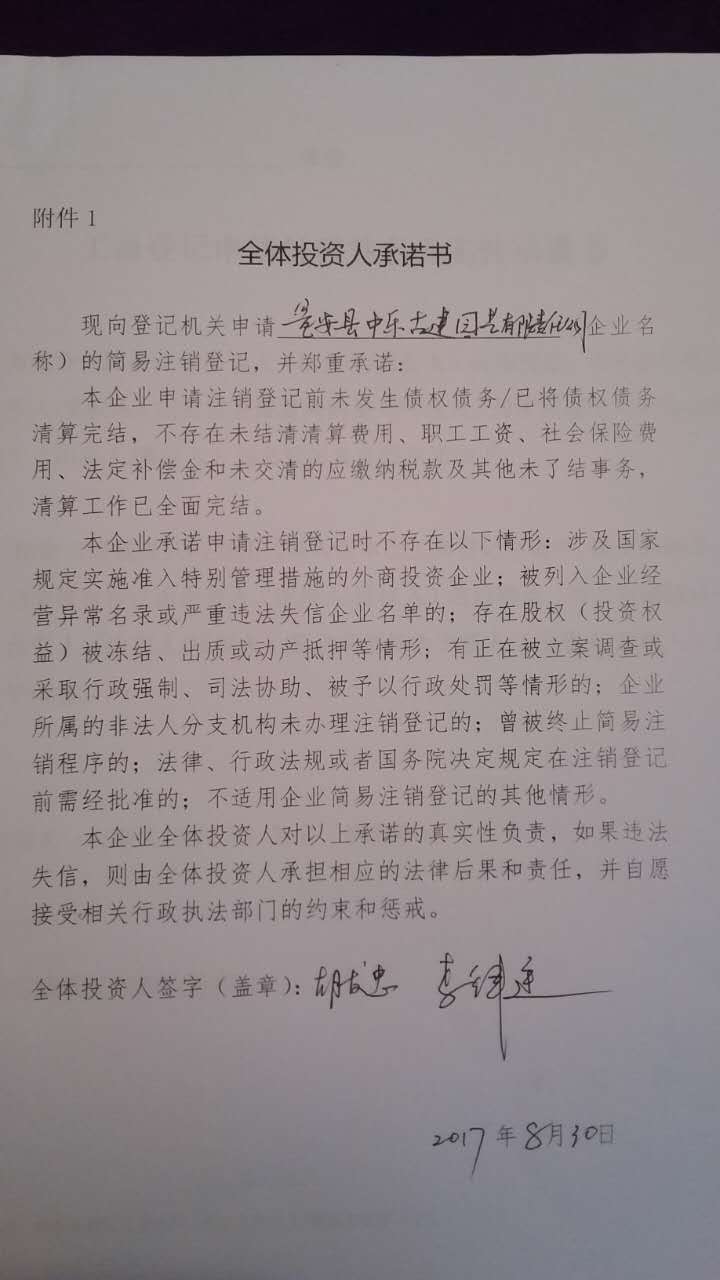 附件1
全体投资人承诺书
现向登记机关申请 县中乐古建园艺有限责任公司企业名
称）的简易注销登记，并郑重承诺：
本企业申请注销登记前未发生债权债务/已将债权债务
清算完结，不存在未结清清算费用、职工工资、社会保险费
用、法定补偿金和未交清的应缴纳税款及其他未了结事务，
清算工作已全面完结。
本企业承诺申请注销登记时不存在以下情形：涉及国家
规定实施准入特别管理措施的外商投资企业；被列入企业经
营异常名录或严重违法失信企业名单的；存在股权（投资权
益）被冻结、出质或动产抵押等情形；有正在被立案调查或
采取行政强制、司法协助、被予以行政处罚等情形的；企业
所属的非法人分支机构未办理注销登记的；曾被终止简易注
销程序的；法律、行政法规或者国务院决定规定在注销登记
前需经批准的；不适用企业简易注销登记的其他情形。
本企业全体投资人对以上承诺的真实性负责，如果违法
失信，则由全体投资人承担相应的法律后果和责任，并自愿
接受相关行政执法部门的约束和惩戒。
全体投资人签字（盖章）：胡 忠 李
2017年8月30日